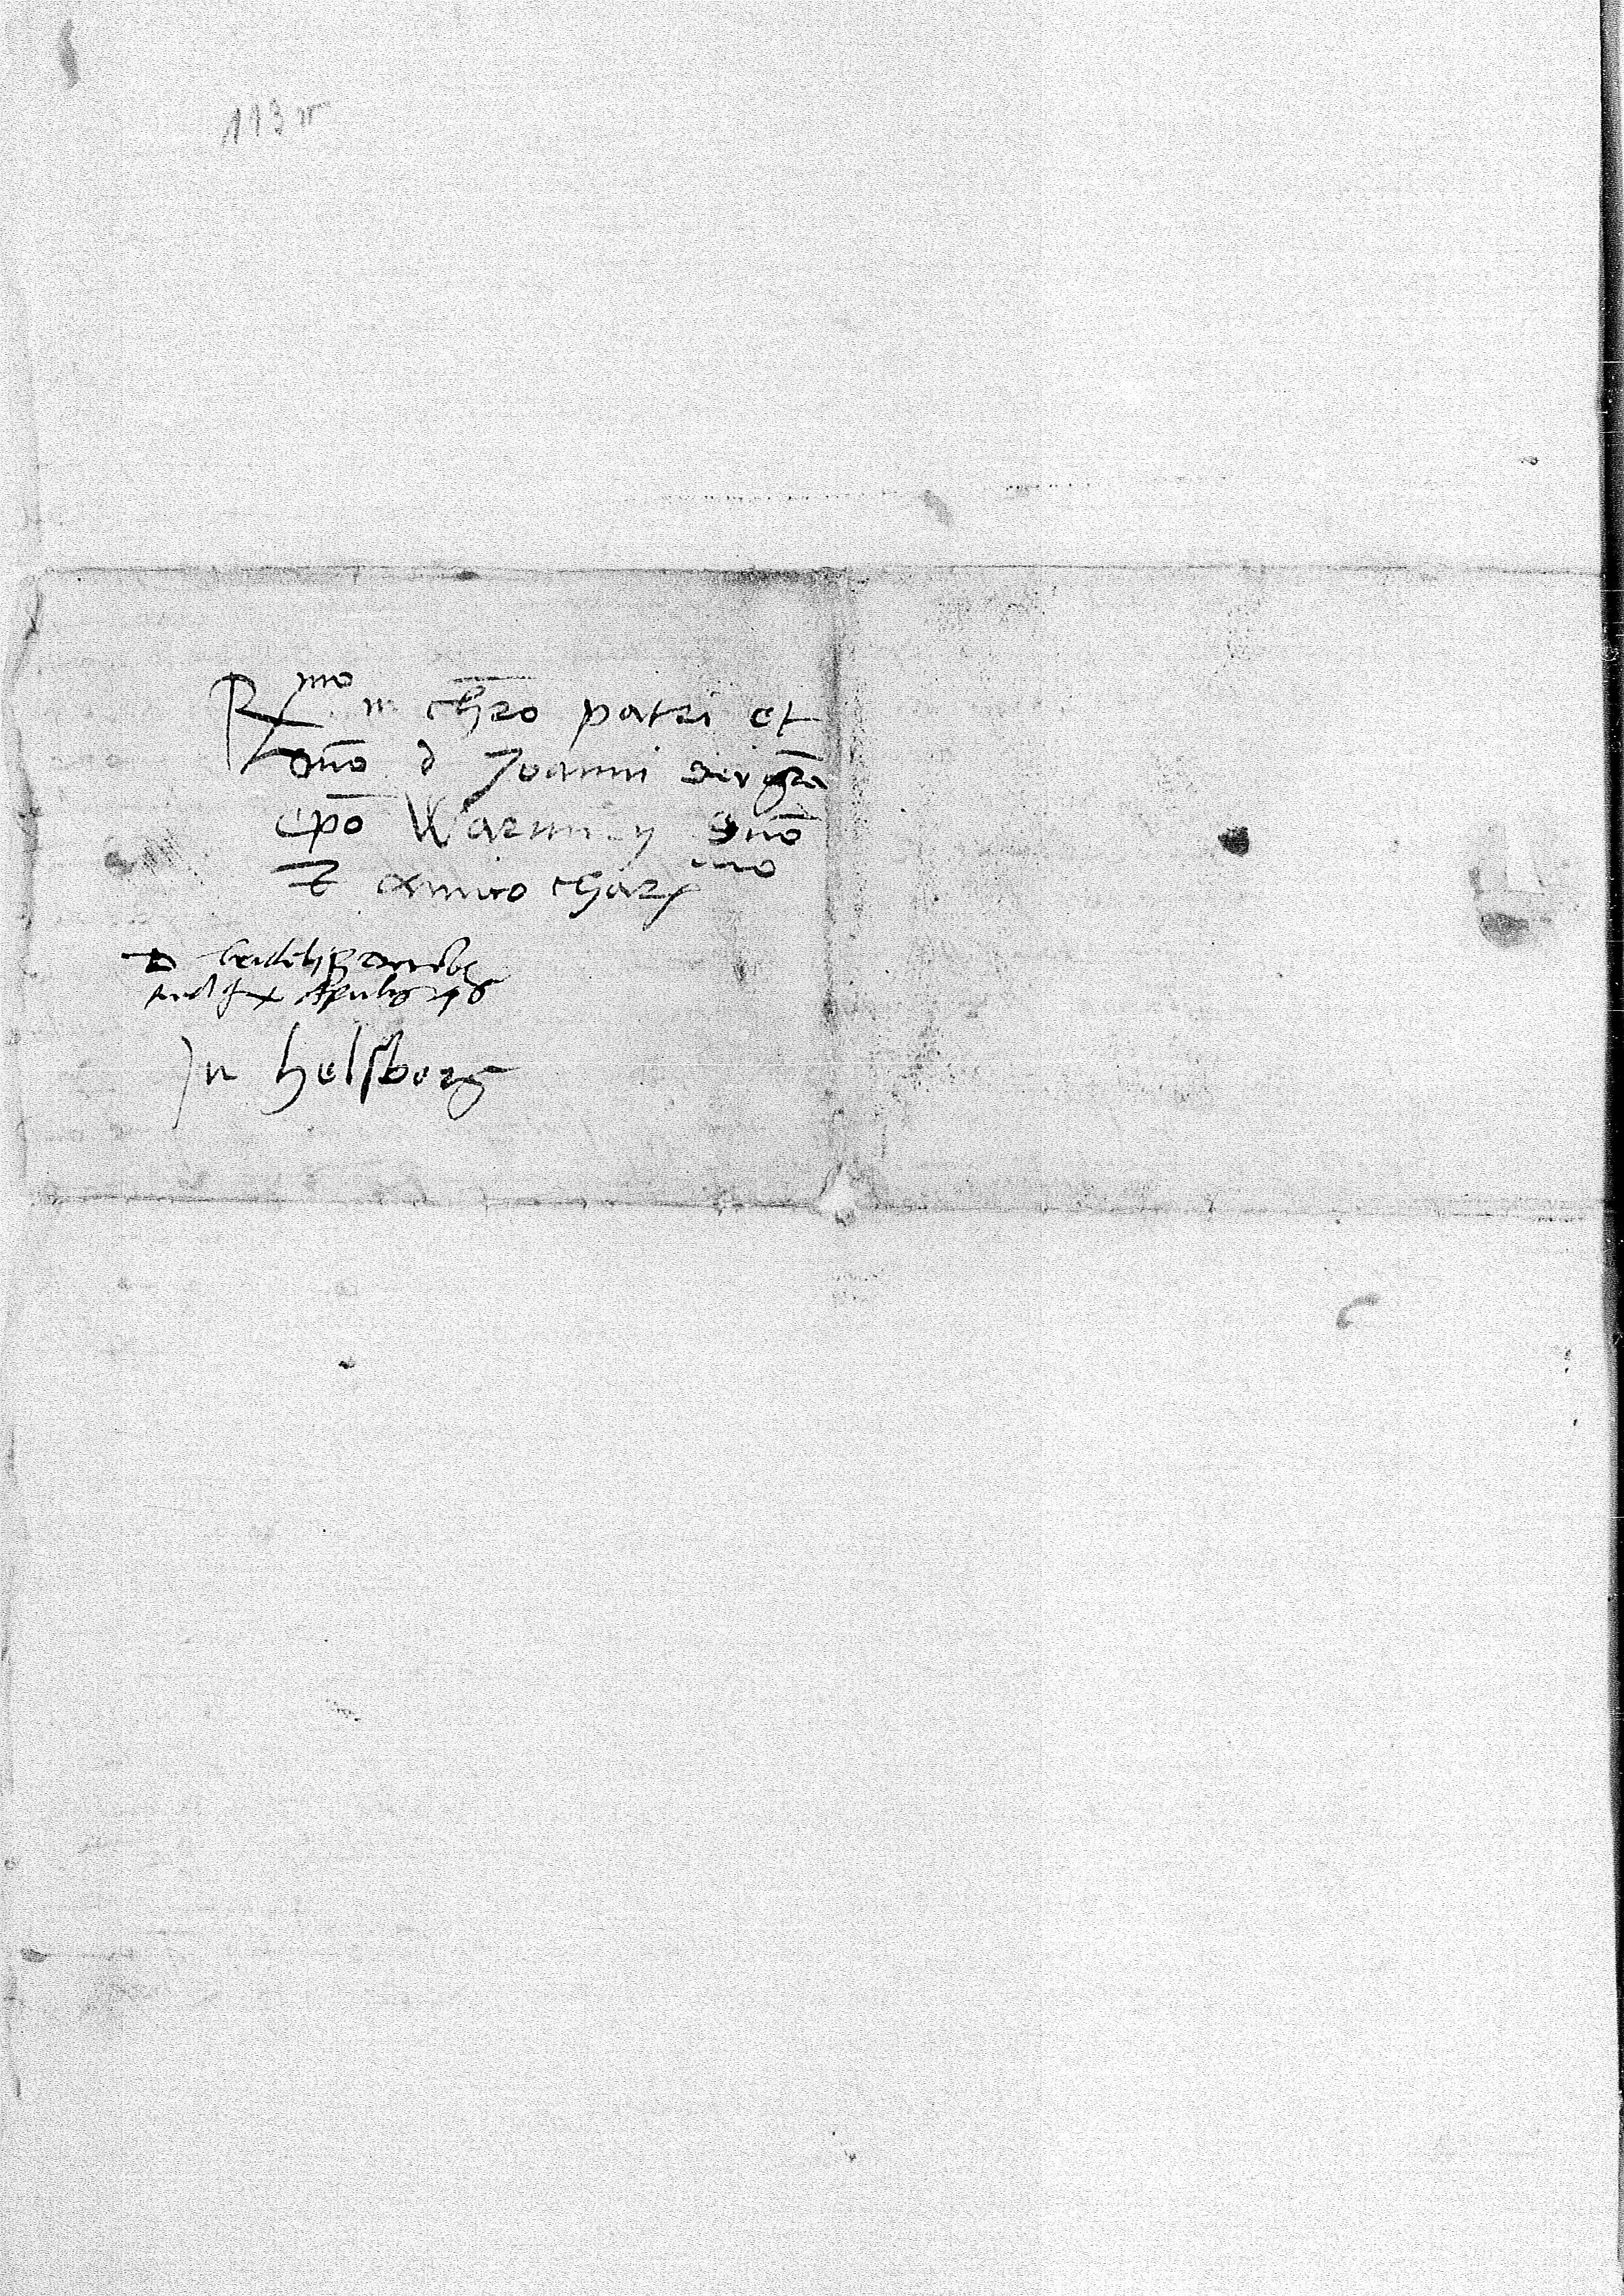 113r
R mo in chro patri et
dno d Joanni dei gra
epo Warmiń dno
et amico char mo
In helsberg